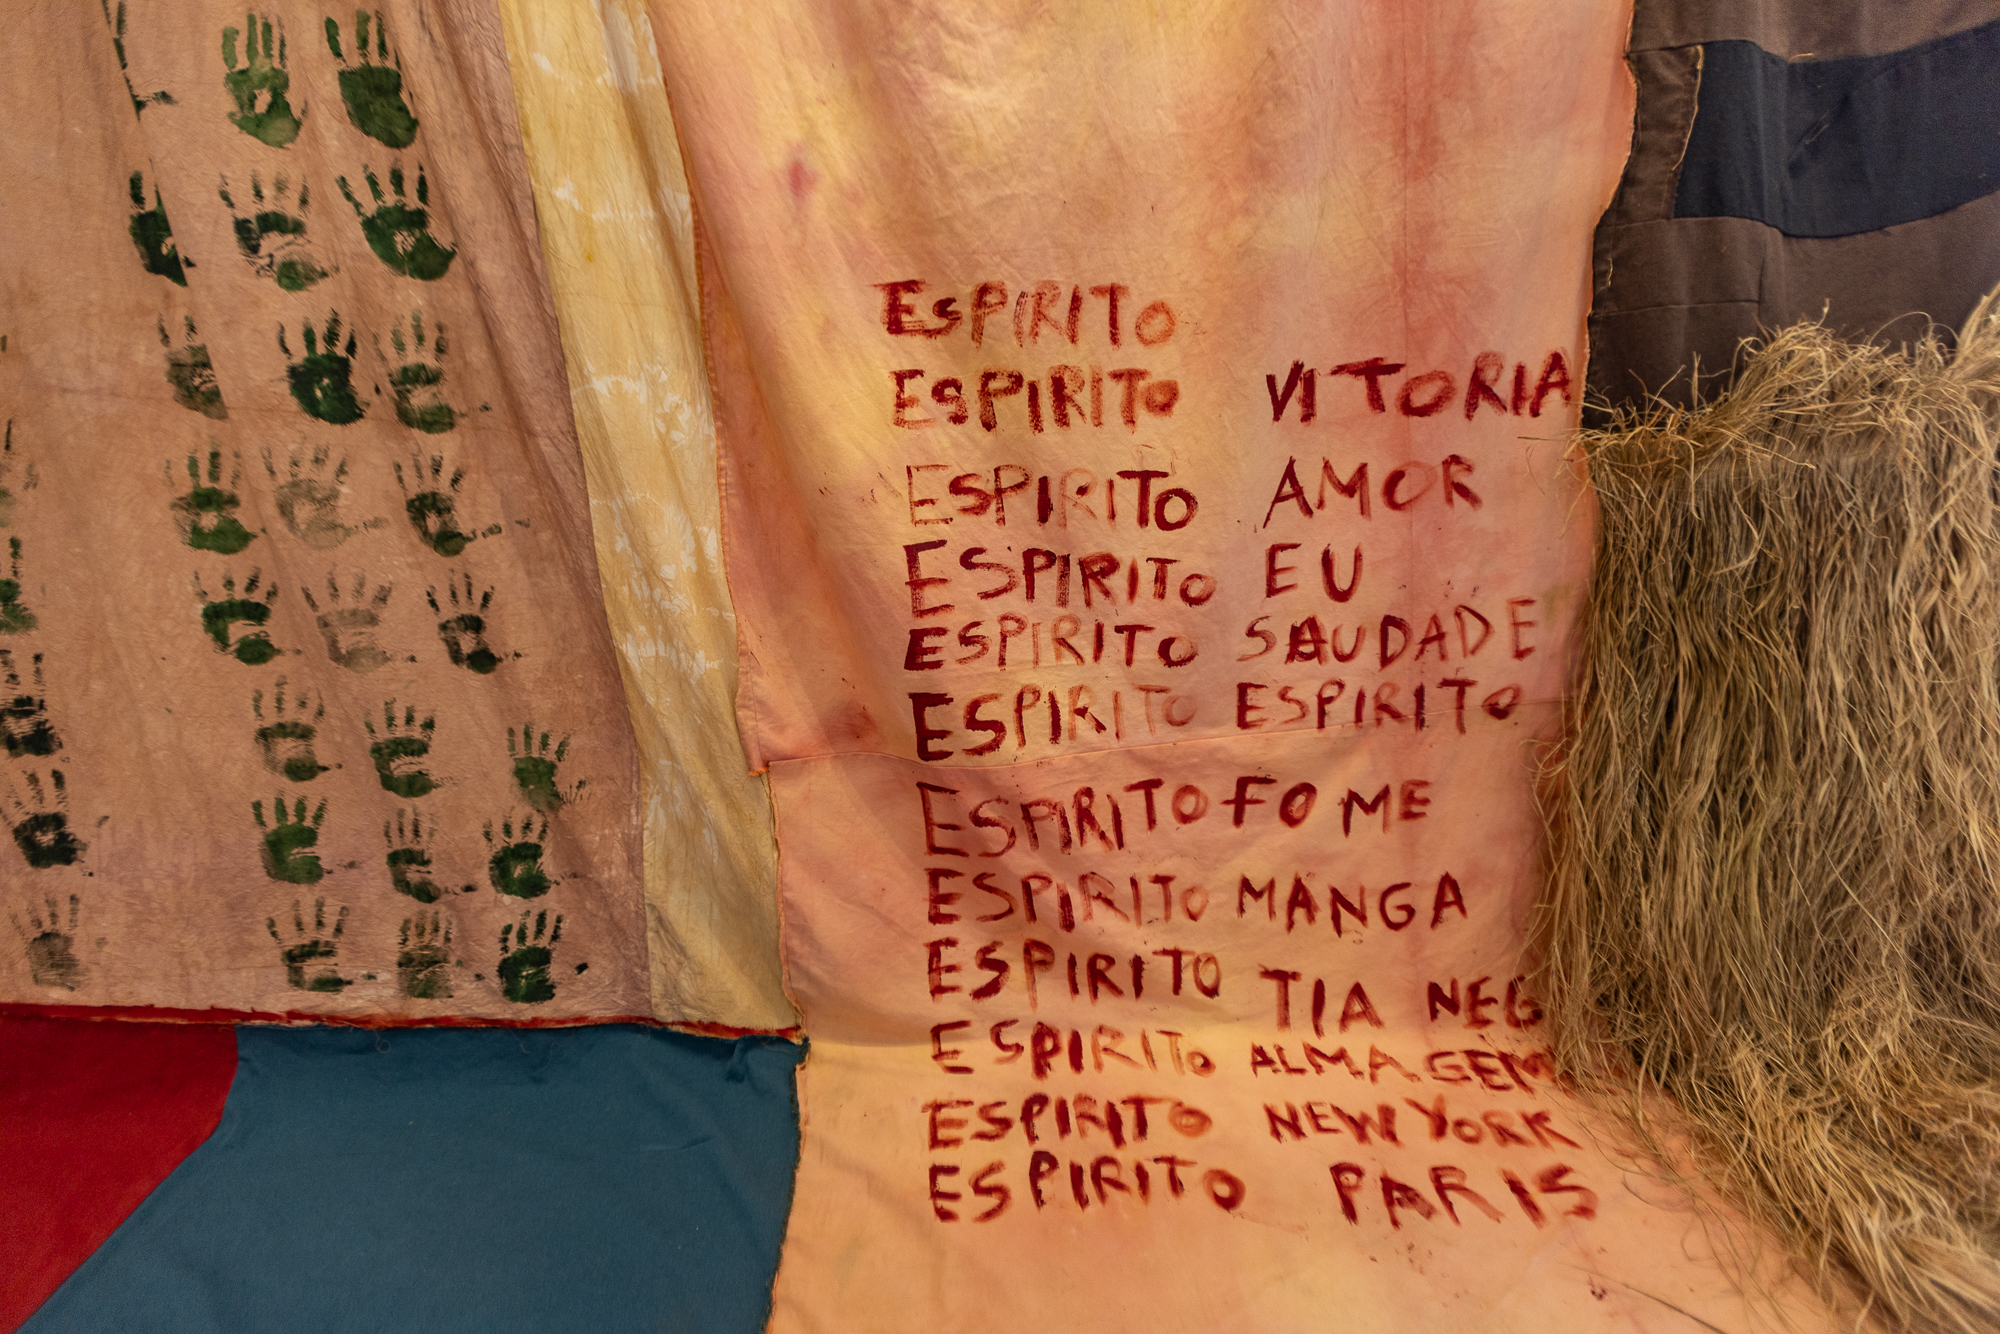 ESPIRITO
ESPIRITO VITORIA
ESPIRITO AMOR
ESPIRITO EU
ESPIRITO SAUDADE
ESPIRITO ESPIRITO
ESPIRITO FOME
ESPIRITO MANGA
ESPIRITO TIA NEG
ESPIRITO ALMA GEM
ESPIRITO NEW YORK
ESPIRITO PARIS